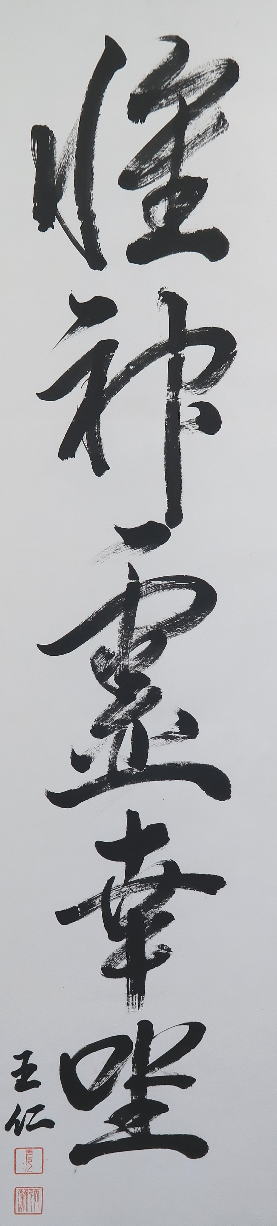 惟神霊幸坐
王仁